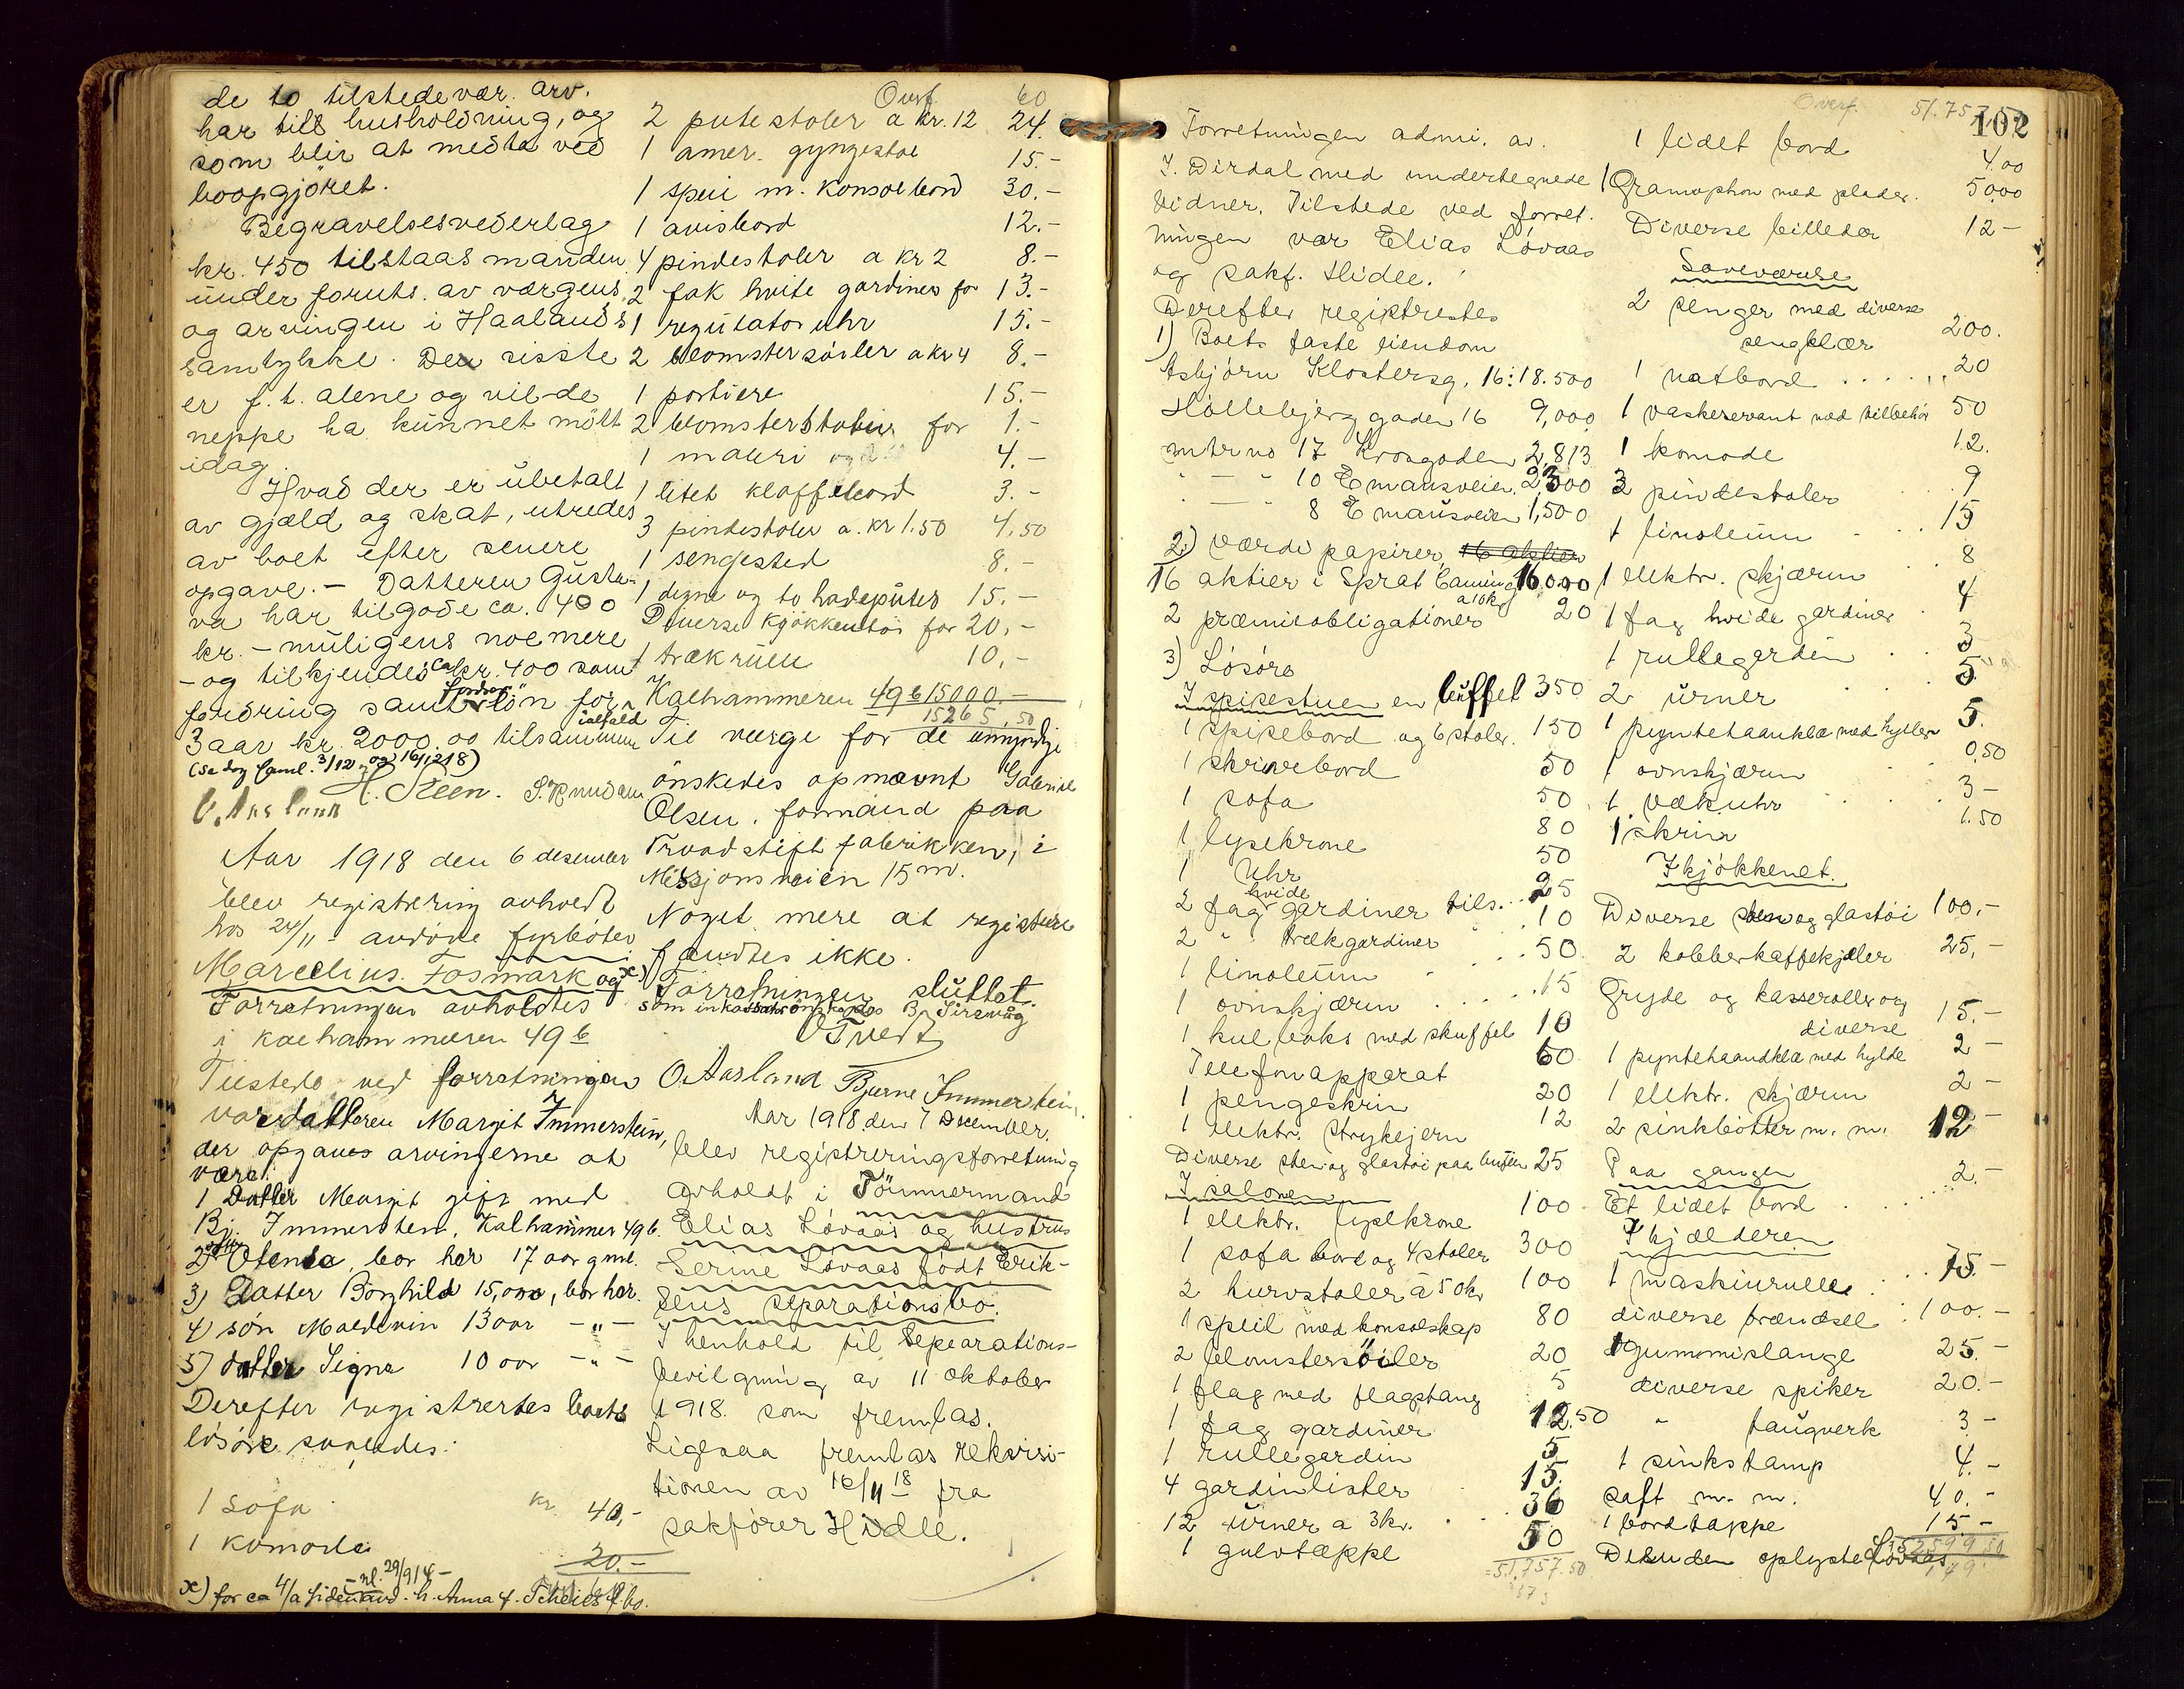 de to tilstedevær. arv.
har till husholdning, og
som blir at medta ved
boopgjöret.
Begravelsesvederlag
kr. 450 tilstaas manden
under foruts. av værgens
og arvingen i Haalands
samtykke. Den sisste
er f. t. alene og vilde
neppe ha kunnet mött
idag.
Hvad der er ubetalt
av gjæld og skat, utredes
av boet efter senere
opgave. - Datteren Gusta-
va har tilgode ca. 400
kr. - muligens noe mere
- og tilkjendes ca kr. 400 som
fordring samt lön for
3 aar kr. 2000.00 ialfald tilsammen
(se dog saml. 3/12 og 16/12 18)
H. Steen. S. Knudsen
O. Aasland
Aar 1918 den 6 desember
blev registrering avholdt
hos 24/11 - avdöde fyrböter
Marcelius Fosmark og x)
Forretningen avholdtes
i Kalhammeren 49 b
Tilstede ved forretningen
var datteren Margit Immerstein,
der opgaves arvingerne at
være:
1 Datter Margit gift med
Bj. Immerstein, Kalhammer 49 b.
2) Otensa, bor her 17 aar gml.
3) Datter Borghild 15 aar, bor her.
4) sön Maldevin 13 aar - " -
5) datter Signe 10 aar - " -
Derefter registrertes boets
lösöre saaledes:
1 Sofa kr. 40,-
1 Komode 20.-
x) for ca 4/a siden avd. h. Anna f.
Overf. 60
2 putestoler a kr. 12 24.
1 amer. gyngestol 15.-
1 speil m. konsolbord 30.-
1 avisbord 12.-
4 pindestoler a kr 2 8.-
2 fak hvite gardiner for 13.-
1 regulator uhr 15.-
2 blomstersöiler a kr 4 8.-
1 portiere 15.-
2 blomsterstativ for 1.-
1 maleri 4.-
1 litet klaffebord 3.-
3 pindestoler a. kr 1.50 4,50
1 sengested 8.-
1 dyne og to hodeputer 15.-
Diverse kjökkentöi for 20.-
1 trækrulle 10.-
Kalhammeren 49 b 15000.-
15265,50
Til værge for de umyndige
önskedes opnævnt Gabriel
Olsen, formand paa
Traadstift fabrikken, i
Missjonsveien 15 m.
Noget mere at registrere
fandtes ikke.
Forretningen sluttet.
som inkassator önskedes B. Tirsvåg
O Tvedt
O. Aasland Bjarne Immerstein.
Aar 1918 den 7 December,
blev registreringsforretning
avholdt i Tömmermand
Elias Lövaas og hustrus
Serine Lövaas födt Erik-
sens separationsbo.
I henhold til Separations-
bevilgning av 11 oktober
1918. som fremlas.
Ligesaa fremlas rekvisi-
tionen av 16/11 18 fra
sakförer Hidle.
102
Forretningen admi. av
J. Dirdal med undertegnede
vidner. Tilstede ved forret-
ningen var Elias Lövaas
og sakf. Hidle.
Derefter registrertes
1) Boets faste eiendom
Asbjörn Klostersg. 16: 18.500
Hollebjerg gaden 16 9,000
mtr no 17 Krosgaden 2,813
" - " 10 Emausveien. 2500
" - " 8 Emausveien 1,500
2) Værdipapirer, 16 aktier
16 aktier i Sprat Caning 16000
2 præmieobligationer a 10 kr 20
3) Lösöre
I spisestuen en buffet 350
1 spisebord og 6 stoler. 150
1 skrivebord 50
1 sofa 50
1 lysekrone 80
1 Uhr 50
2 fag hvide gardiner tils. 25
2 " trækgardiner 10
1 linoleum 50
1 ovnskjærm 15
1 kulboks med skuffel 10
Telefonapparat 60
1 pengeskrin 20
1 elektr. strykejern 12
Diverse sten og glastöi paa buffeten 25
I salonen
1 elektr. lysekrone 100
1 sofa bord og 4 stoler 300
2 kurvstoler a 50 kr 100
1 speil med konsolskap 80
2 blomstersöiler 20
1 flag med flagstang 5
1 fag gardiner 12.50
1 rullegardin 5
4 gardinlister 15.
12 urner a 3 kr. 36
1 gulvtæppe 50
51,757.50
Overf. 51.757,50
1 lidet bord 4.00
1 Gramophon med plader. 50,00
Diverse billeder 12 -
Soveværelse
2 senger med diverse
sengklær 200.
1 natbord 20
1 vaskeservant med tilbehör 50
1 komode 12.
3 pindestoler 9
1 linoleum 15
1 elektr. skjærm 8
1 fag hvide gardiner 4
1 rullegardin 3
2 urner 5
1 pyntehaandklæ med hylder 5.
1 ovnskjærm 0,50
1 vækuhr 3 -
1 skrin 1.50
I kjökkenet.
Diverse sten og glastöi 100.-
2 kobberkaffekjeler 25,-
Gryde og kasseroller og
diverse 15.-
1 pyntehaandklæ med hylde 2 -
1 elektr. skjærm 2 -
2 sinkbötter m. m. 12 -
Paa gangen
Et lidet bord 2.-
I kjælderen
1 maskinrulle 75.-
diverse brændsel 100.-
1 gummislange 25.-
diverse spiker 20.-
" taugverk 3 -
1 sinkstamp 4.-
saft m. m. 40.-
1 bordtæppe 15 -
Desuden oplyste Lövaas